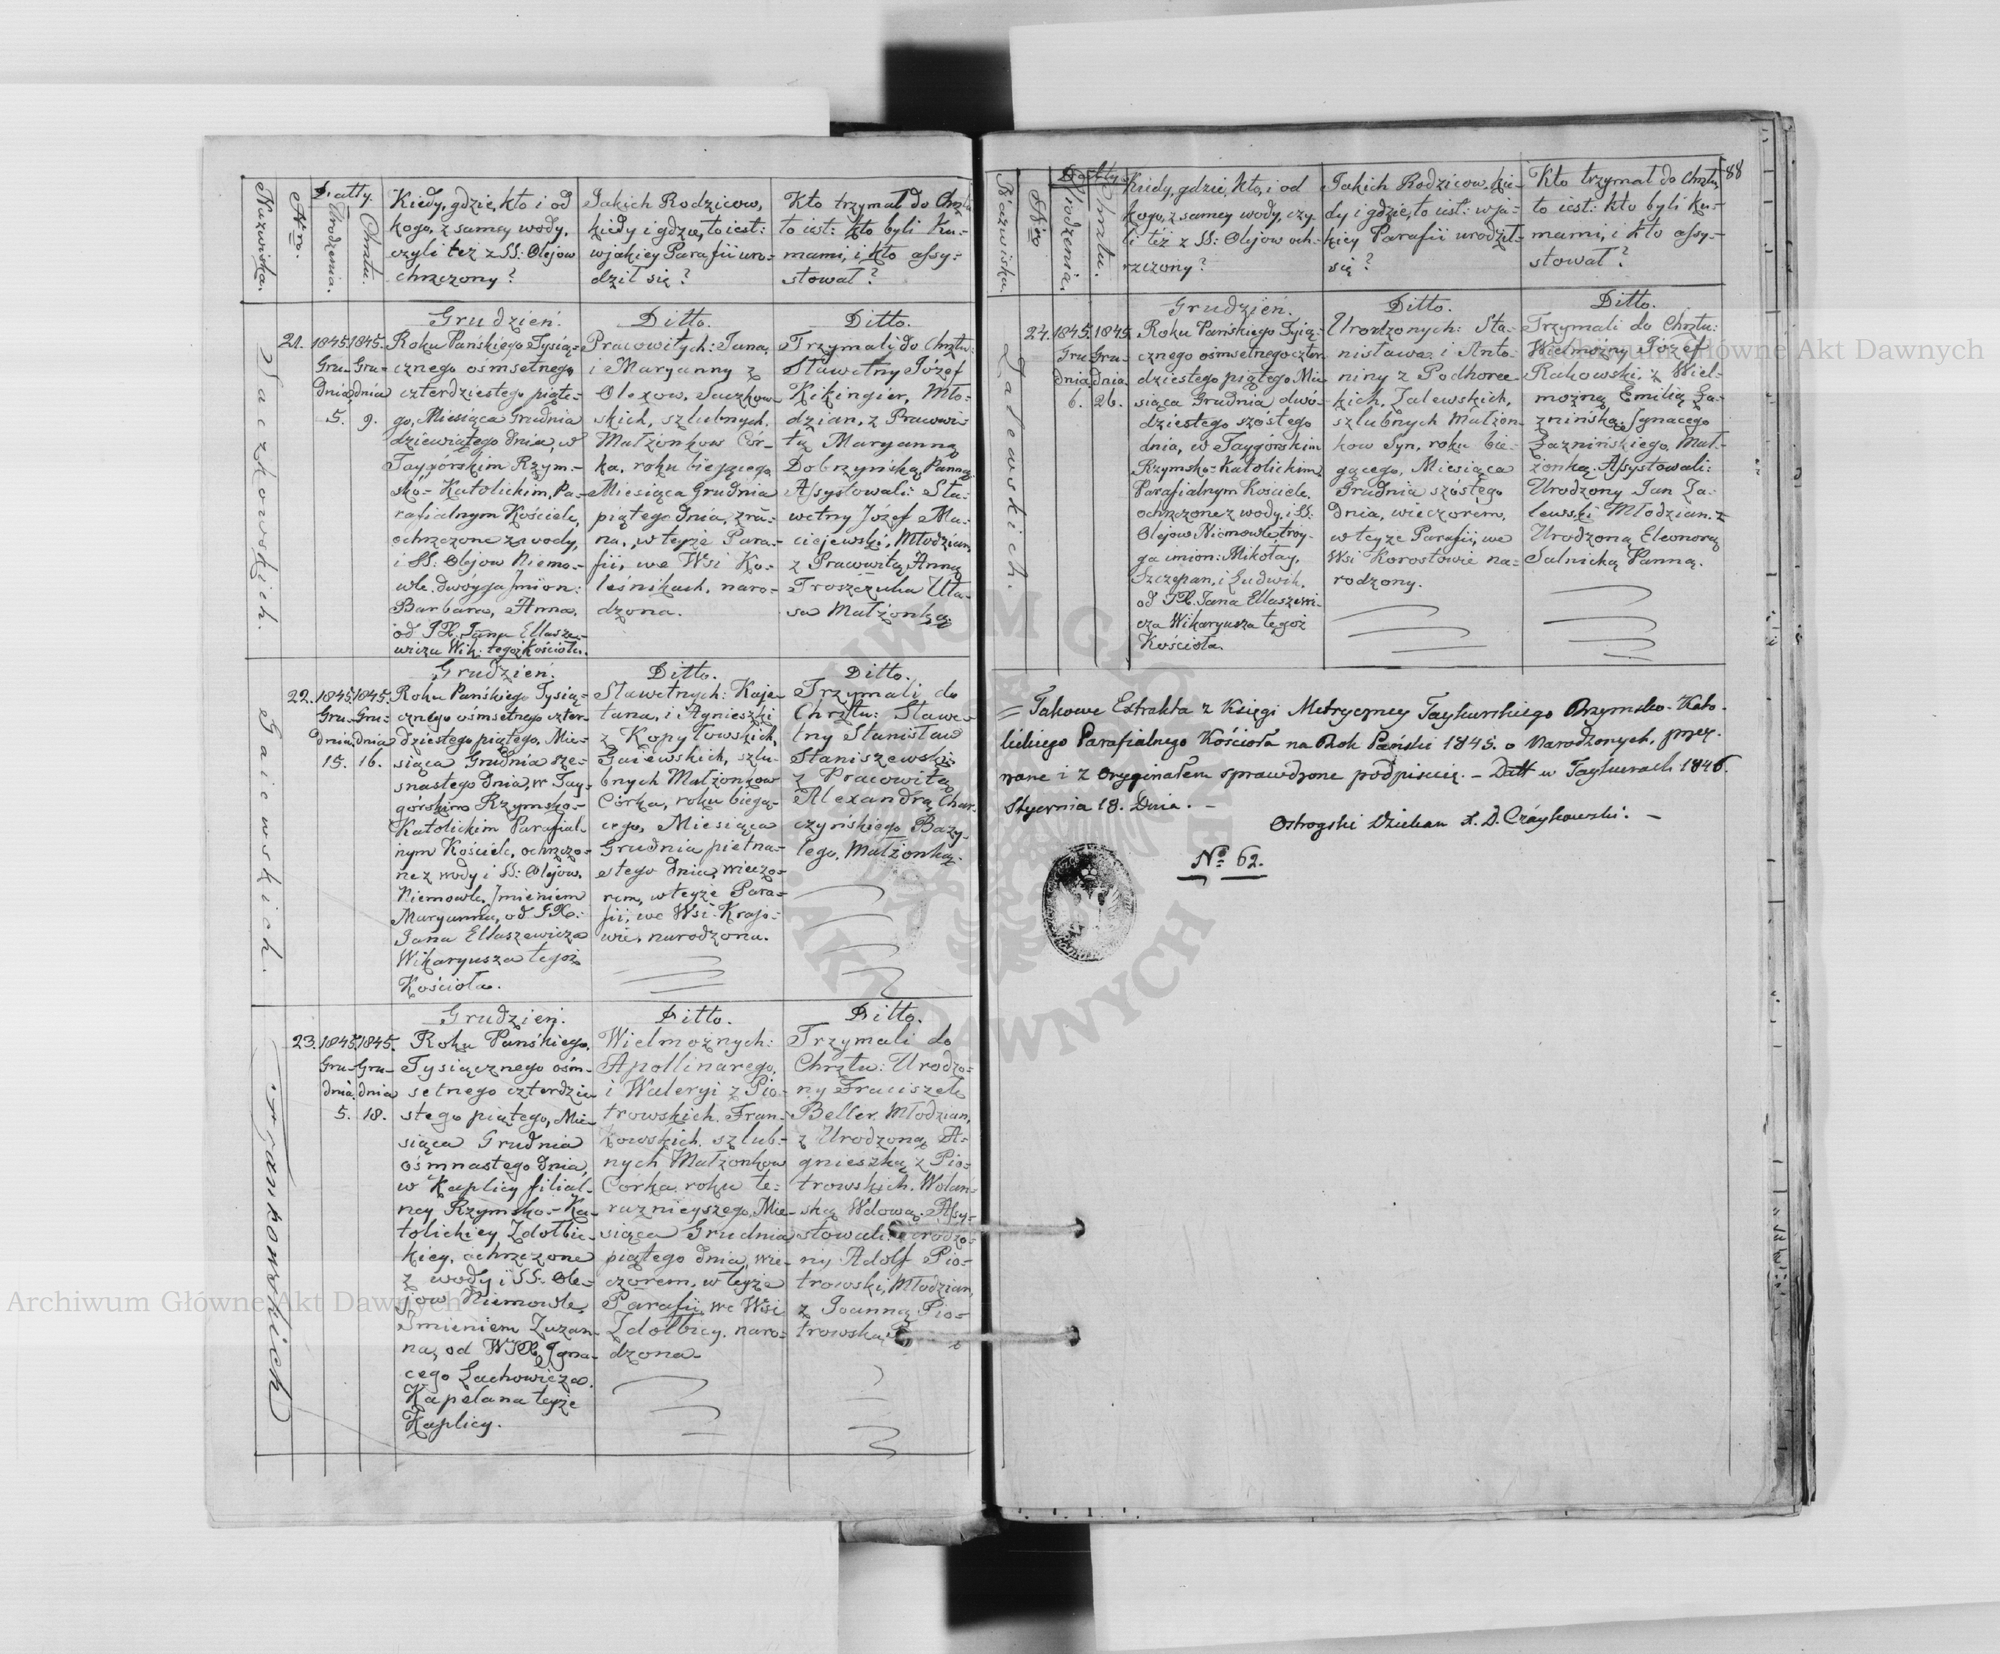 Nazwiska.
Nro.
Datty.
Urodzenia.
Chrztu.
Kiedy, gdzie, kto i od
kogo, z samey wody,
czyli też z SS: Olejow
chrzczony?
Jakich Rodzicow,
kiedy i gdzie, to iest:
w jakiey Parafii uro-
dził się?
Kto trzymał do Chrztu
to iest: kto byli Ku-
mami, i kto assy-
stował?
Saczkowskich.
21.
1845.
Gru-
dnia
5.
1845.
Gru-
dnia
9.
Grudzień.
Roku Pańskiego Tysią-
cznego ośmsetnego
czterdziestego piąte-
go, Miesiąca Grudnia
dziewiątego dnia, w
Taygórskim Rzym-
sko-Katolickim, Pa-
rafialnym Kościele,
ochrzczone z wody,
i SS: Olejow Niemo-
wle. dwóyga Imion:
Barbara, Anna,
od JX. Jana Ellasze-
wicza Wik: tegoż Kościoła.
Ditto.
Pracowitych: Jana,
i Maryanny z
Olexow, Saczkow-
skich, szlubnych,
Małżonkow Cór-
ka, roku bieżącego
Miesiąca Grudnia
piątego dnia, zra-
na, w teyże Para-
fii, we Wsi Ko-
leśnikach, naro-
dzona.
Ditto.
Trzymali do Chrztu:
Sławetny Józef
Kikingier, Mło-
dzian, z Pracowi-
tą Maryanną
Dobrzyńską, Panną.
Assystowali: Sła-
wetny Józef Ma-
ciejewski, Młodzian,
z Pracowitą Anną
Troszczuka Ula-
sa Małżonką.
Gaiewskich.
22.
1845.
Gru-
dnia
15.
1845.
Gru-
dnia
16.
Grudzień.
Roku Pańskiego Tysią-
cznego ośmsetnego czter-
dziestego piątego, Mie-
siąca Grudnia sze-
snastego dnia, w Tay-
górskim Rzymsko-
Katolickim Parafial-
nym Kościele, ochrzczo-
ne z wody i SS: Olejow,
Niemowle, Imieniem
Maryanna, od JX:
Jana Ellaszewicza
Wikaryusza tegoż
Kościoła.
Ditto.
Sławetnych: Kaje-
tana, i Agnieszki
z Kopyłowskich,
Gaiewskich, szlu-
bnych Małżonkow
Córka, roku bieżą-
cego, Miesiąca
Grudnia pietna-
stego dnia, wieczo-
rem, w teyże Para-
fii, we Wsi Krajo-
wie, narodzona.
Ditto.
Trzymali do
Chrztu: Sławe-
tny Stanisław
Staniszewski
z Pracowitą
Alexandrą Char-
czyńskiego Bazy-
lego, Małżonką.
Frankowskich
23.
1845.
Gru-
dnia
5.
1845.
Gru-
dnia
18.
Grudzień.
Roku Pańskiego,
Tysiącznego ośm-
setnego czterdzie-
stego piątego, Mie-
siąca Grudnia
ośmnastego dnia,
w Kaplicy filial-
ney Rzymsko-Ka-
tolickiey Zdołbic-
kiey, ochrzczone
z wody i SS: Ole-
jow Niemowle,
Imieniem Zuzan-
na, od WJX. Igna-
cego Lachowicza.
Kapelana teyże
Kaplicy.
Ditto.
Wielmożnych:
Apollinarego,
i Waleryi z Pio-
trowskich, Fran-
kowskich, szlub-
nych Małżonkow
Corka, roku te-
raznieyszego, Mie-
siąca Grudnia
piątego dnia, wie-
czorem, w teyże
Parafii, we Wsi
Zdołbicy, naro-
dzona.
Ditto.
Trzymali do
Chrztu: Urodzo-
ny Franciszek
Beller, Młodzian,
z Urodzoną A-
gnieszką z Pio-
trowskich, Wolan-
ską Wdową. Assy-
stowali: Urodzo-
ny Adolf Pio-
trowski, Młodzian,
z Joanną Pio-
trowską
88
Nazwiska.
Nro
Datty.
Urodzenia.
Chrztu.
Kiedy, gdzie, kto, i od
kogo, z samey wody, czy-
li też z SS: Olejow och-
rzczony?
Jakich Rodzicow, kie-
dy i gdzie, to iest: w ja-
kiey Parafii urodził
się?
Kto trzymał do Chrztu,
to iest: kto byli Ku-
mami, i kto assy-
stował?
Zalewskich.
24.
1845.
Gru-
dnia
6.
1845.
Gru-
dnia
26.
Grudzień.
Roku Pańskiego Tysią-
cznego ośmsetnego czter-
dziestego piątego Mie-
siąca Grudnia dwó-
dziestego szóstego
dnia, w Taygórskim
Rzymsko-Katolickim
Parafialnym Kościele,
ochrzczone z wody, i SS:
Olejow Niemowle, troy-
ga imion: Mikołay,
Szczepan, i Ludwik,
od JX. Jana Ellaszewi-
cza Wikaryusza tegoż
Kościoła.
Ditto.
Urodzonych: Sta-
nisława, i Anto-
niny z Podhorec-
kich, Zalewskich,
szlubnych Małżon-
kow Syn, roku bie-
żącego, Miesiąca
Grudnia szóstego
dnia, wieczorem,
w teyże Parafii, we
Wsi Korostowie na-
rodzony.
Ditto.
Trzymali do Chrztu:
Wielmożny Józef
Rakowski, z Wiel-
możną Emilią Ła-
znińską, Ignacego
Łaznińskiego, Mał-
żonką. Assystowali:
Urodzony Jan Za-
lewski Młodzian, z
Urodzoną Eleonorą
Salnicką Panną.
Takowe Extrakta z Księgi Metryczney Taykurskiego Rzymsko-Kato-
lickiego Parafialnego Kościoła na Rok Pański 1845. o Narodzonych, przez
mnie i z Oryginałem sprawdzone podpisuię. – Datt w Taykurach 1846.
Stycznia 18. Dnia. –
Ostrogski Dziekan X. D. Czaykowski. –
No 62.
Archiwum Główne Akt Dawnych
Archiwum Główne Akt Dawnych
ARCHIWUM GŁÓWNE
AKT DAWNYCH